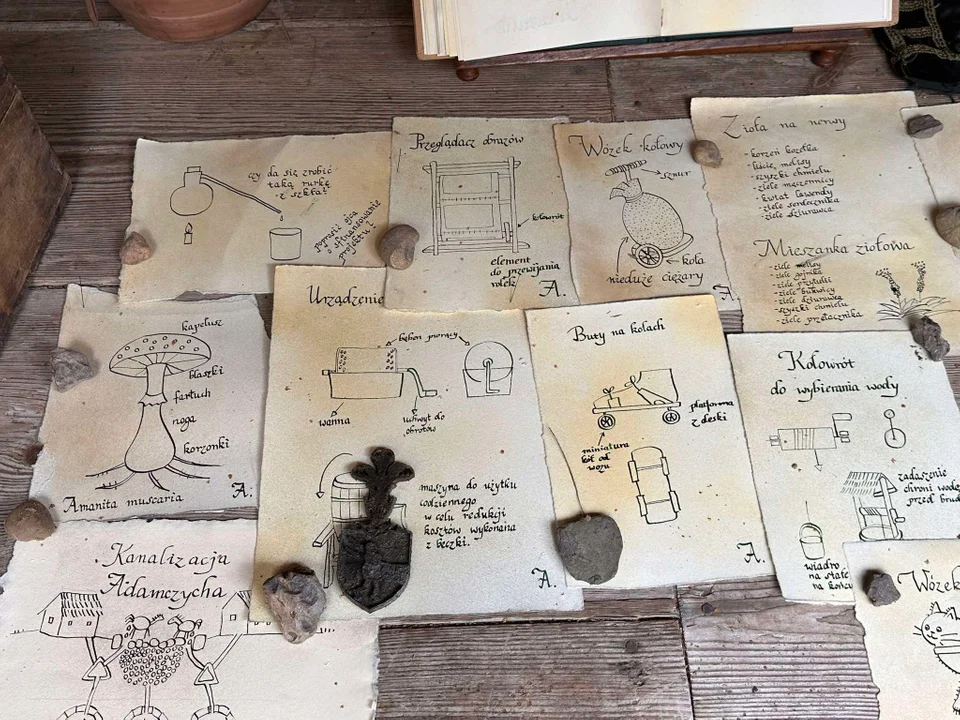 czy da się zrobić
taką rurkę
z szkła?
poprosić ojca
o sfinansowanie
projektu?
Przeglądacz obrazów
kołowrót
element
do przewijania
rolek
A.
Wózek kołowy
sznur
koła
nieduże ciężary
A.
Zioła na nerwy
- korzeń kozłka
- liście melisy
- szyszki chmielu
- ziele męczennicy
- kwiat lawendy
- ziele serdecznika
- ziele dziurawca
Mieszanka ziołowa
- ziele melisy
- ziele gojnika
- ziele przytulii
- ziele bukwicy
- ziele dziurawca
- szyszki chmielu
- ziele przetacznika
kapelusz
blaszki
fartuch
noga
korzonki
Amanita muscaria
A.
Urządzenie
bęben piorący
wanna
uchwyt do
obrotów
maszyna do użytku
codziennego
w celu redukcji
kosztów wykonana
z beczki.
A.
Buty na kołach
platforma
z deski
miniatura
kół od
wozu
A.
Kołowrót
do wybierania wody
zadaszenie
chroni wodę
przed brud
wiadro
na stałe
na końcu
Kanalizacja
Adamczycha
Wózek